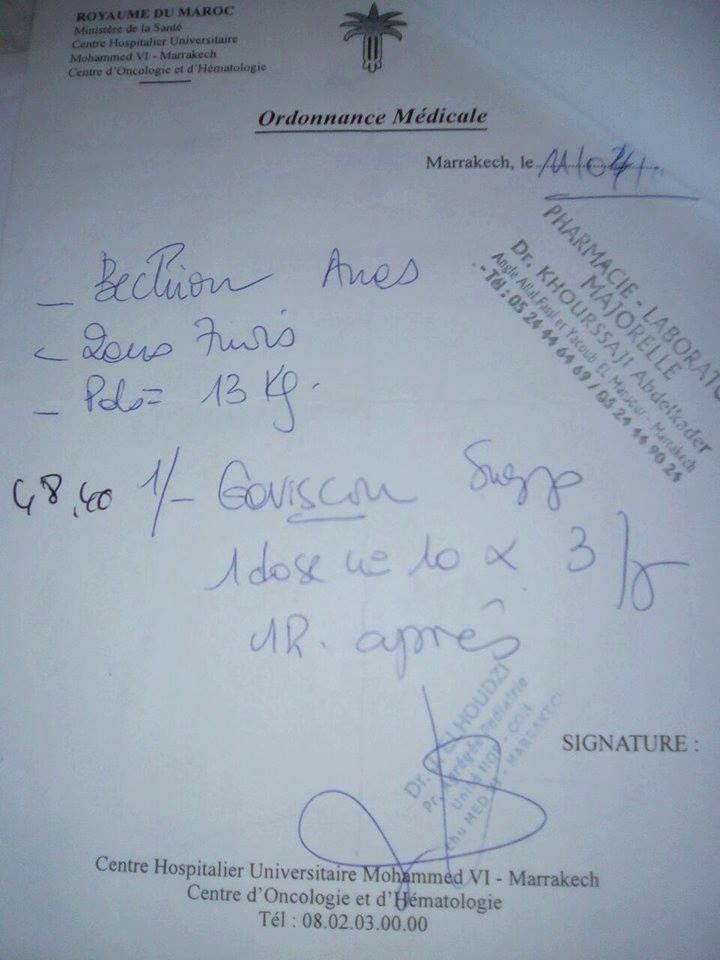 ROYAUME DU MAROC
Ministère de la Santé
Centre Hospitalier Universitaire
Mohammed VI - Marrakech
Centre d'Oncologie et d'Hématologie
Ordonnance Médicale
Marrakech, le 11/04/
PHARMACIE - LABORATO
MAJORELLE
Dr. KHOURSSAJI Abdelkader
Angle Allal Fassi et Yacoub EL Mansour - Marrakech
- Tél : 05 24 44 64 69 / 05 24 44 90 24
- Anas
- Poids = 13 Kg.
48,40 1/- Gaviscon Susp
1 dose de 10 x 3/j
1R. après
Dr. ELHOUDZI
Pr. Agrégée Pédiatrie
Unité HOP - COH
chu MED VI - MARRAKECH
SIGNATURE :
Centre Hospitalier Universitaire Mohammed VI - Marrakech
Centre d'Oncologie et d'Hématologie
Tél : 08.02.03.00.00